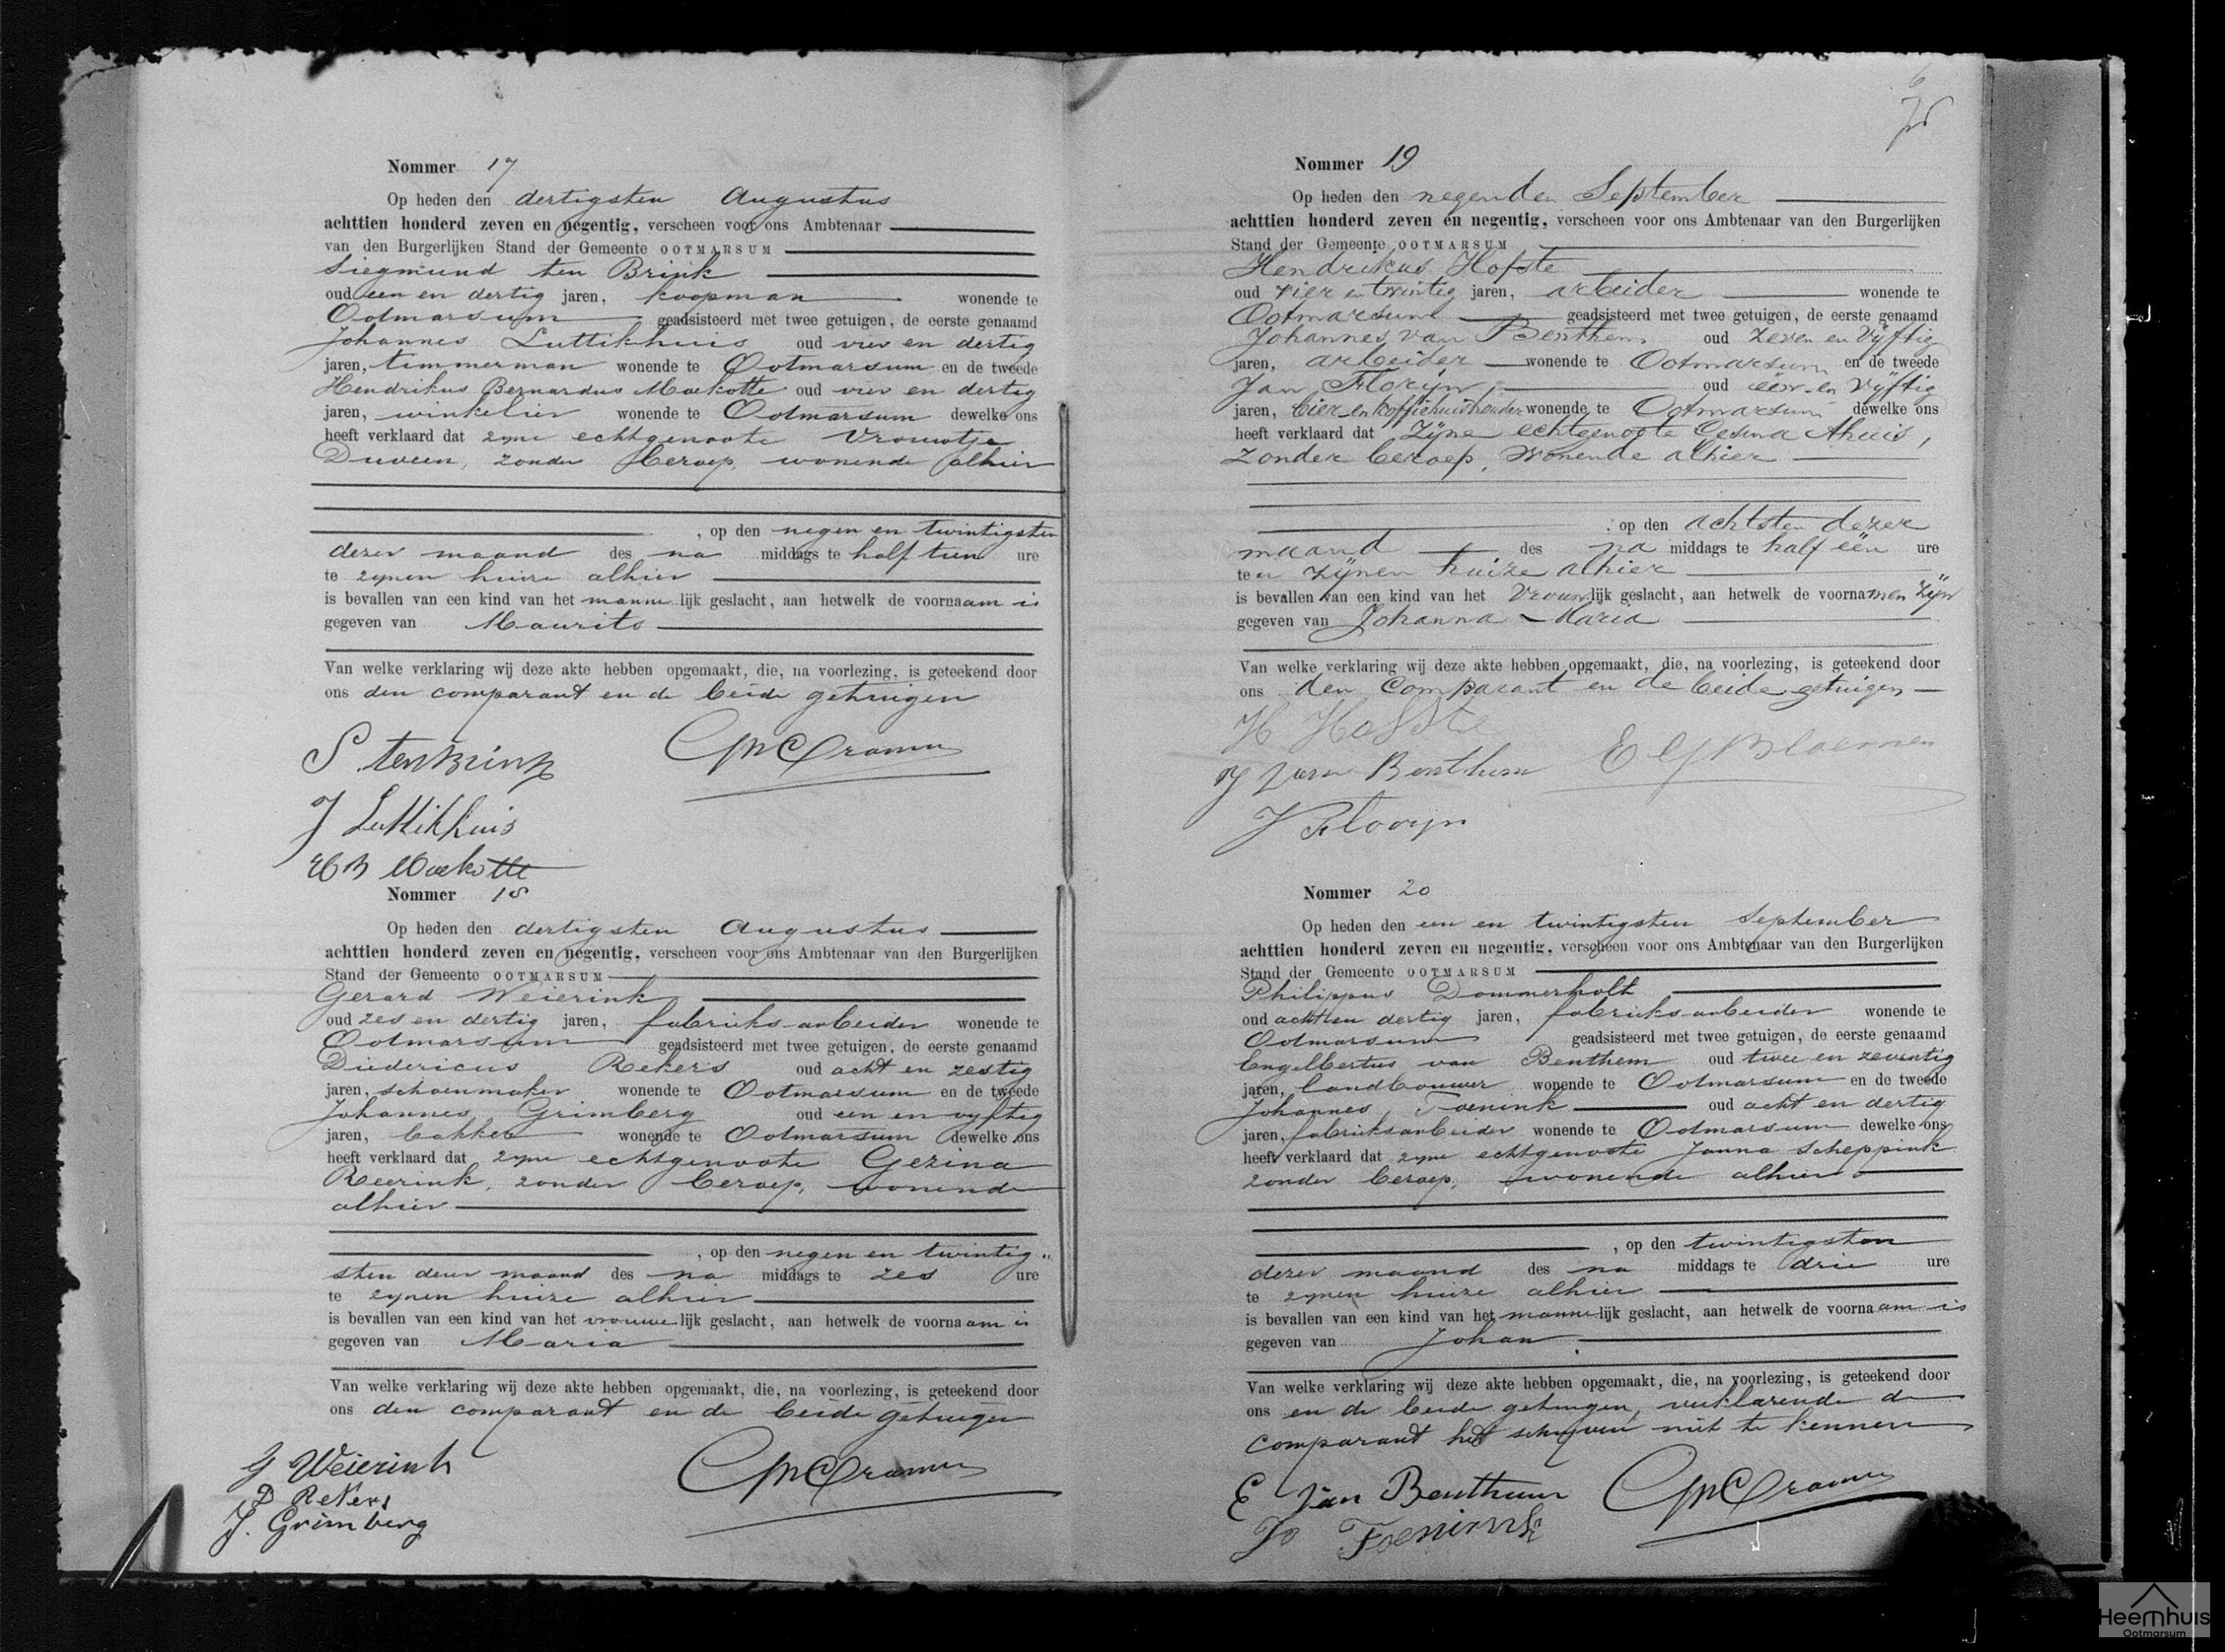 Nommer 17
Op heden den dertigsten Augustus
achttien honderd zeven en negentig, verscheen voor ons Ambtenaar
van den Burgerlijken Stand der Gemeente OOTMARSUM
Siegmund ten Brink
oud een en dertig jaren, koopman wonende te
Ootmarsum geadsisteerd met twee getuigen, de eerste genaamd
Johannes Luttikhuis oud vier en dertig
jaren, timmerman wonende te Ootmarsum en de tweede
Hendrikus Bernardus Moekotte oud vier en dertig
jaren, winkelier wonende te Ootmarsum dewelke ons
heeft verklaard dat zyne echtgenoote Vrouwtje
Duveen, zonder beroep, wonende alhier
, op den negen en twintigsten
dezer maand des na middags te half tien ure
te zynen huize alhier
is bevallen van een kind van het mannelijk geslacht, aan hetwelk de voornaam is
gegeven van Maurits
Van welke verklaring wij deze akte hebben opgemaakt, die, na voorlezing, is geteekend door
ons den comparant en de beide getuigen
S tenBrink
J Luttikhuis
HB Moekotte
Nommer 18
Op heden den dertigsten Augustus
achttien honderd zeven en negentig, verscheen voor ons Ambtenaar van den Burgerlijken
Stand der Gemeente OOTMARSUM
Gerard Weierink
oud zes en dertig jaren, fabrieks-arbeider wonende te
Ootmarsum geadsisteerd met twee getuigen, de eerste genaamd
Diedericus Rekers oud acht en zestig
jaren, schoenmaker wonende te Ootmarsum en de tweede
Johannes Grimberg oud een en vyftig
jaren, bakker wonende te Ootmarsum dewelke ons
heeft verklaard dat zyne echtgenoote Gezina
Reerink, zonder beroep, wonende
alhier
, op den negen en twintig"
sten dezer maand des na middags te zes ure
te zynen huize alhier
is bevallen van een kind van het vrouwelijk geslacht, aan hetwelk de voornaam is
gegeven van Maria
Van welke verklaring wij deze akte hebben opgemaakt, die, na voorlezing, is geteekend door
ons den comparant en de beide getuigen
G Weierink
D Rekers
J. Grimberg
Nommer 19
Op heden den negenden September
achttien honderd zeven en negentig, verscheen voor ons Ambtenaar van den Burgerlijken
Stand der Gemeente OOTMARSUM
Hendrikus Hofste
oud vier en twintig jaren, arbeider wonende te
Ootmarsum geadsisteerd met twee getuigen, de eerste genaamd
Johannes van Benthem oud zeven en vijftig
jaren, arbeider wonende te Ootmarsum en de tweede
Jan Florijn, oud één en vijftig
jaren, bier- en koffiehuishouder wonende te Ootmarsum dewelke ons
heeft verklaard dat zijne echtgenoote Gesina Ahuis,
zonder beroep, wonende alhier
, op den achtsten dezer
maand des na middags te half één ure
ten zijnen huize alhier
is bevallen van een kind van het vrouwlijk geslacht, aan hetwelk de voornamen zijn
gegeven van Johanna Maria
Van welke verklaring wij deze akte hebben opgemaakt, die, na voorlezing, is geteekend door
ons den comparant en de beide getuigen
H Hofste
J van Benthem
J Florijn
Nommer 20
Op heden den een en twintigsten September
achttien honderd zeven en negentig, verscheen voor ons Ambtenaar van den Burgerlijken
Stand der Gemeente OOTMARSUM
Philippus Dommerholt
oud acht en dertig jaren, fabrieks-arbeider wonende te
Ootmarsum geadsisteerd met twee getuigen, de eerste genaamd
Engelbertus van Benthem oud twee en zeventig
jaren, landbouwer wonende te Ootmarsum en de tweede
Johannes Foenink oud acht en dertig
jaren, fabrieksarbeider wonende te Ootmarsum dewelke ons
heeft verklaard dat zyne echtgenoote Janna Scheppink
zonder beroep, wonende alhier
, op den twintigsten
dezer maand des na middags te drie ure
te zynen huize alhier
is bevallen van een kind van het mannelijk geslacht, aan hetwelk de voornaam is
gegeven van Johan
Van welke verklaring wij deze akte hebben opgemaakt, die, na voorlezing, is geteekend door
ons en de beide getuigen, verklarende de
comparant het schryven niet te kennen
E van Benthem
Jo Foenink
Heemhuis
Ootmarsum